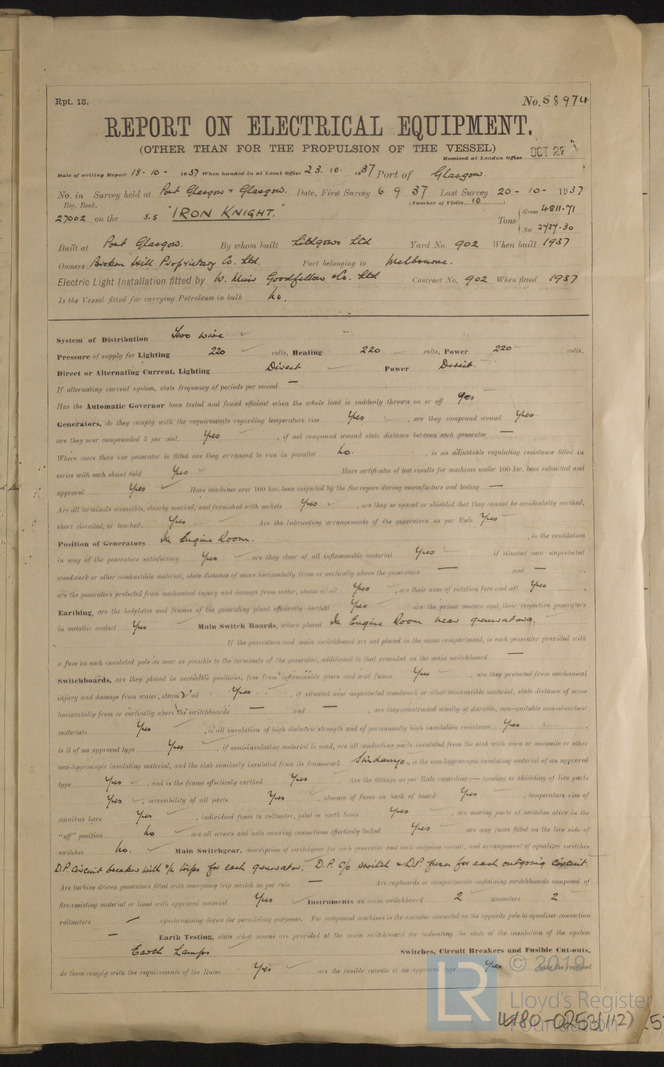 Rpt. 13.
No. 58974
REPORT ON ELECTRICAL EQUIPMENT.
(OTHER THAN FOR THE PROPULSION OF THE VESSEL)
Received at London Office OCT 27
Date of writing Report 18-10- 1937 When handed in at Local Office 23.10. 1937 Port of Glasgow.
No. in Survey held at Port Glasgow & Glasgow. Date, First Survey 6.9.37 Last Survey 20-10-1937
Reg. Book. (Number of Visits 10)
27002 on the s.s "IRON KNIGHT." Tons Gross 4811.71
Net 2737.30
Built at Port Glasgow. By whom built Lithgows Ltd Yard No. 902 When built 1937
Owners Broken Hill Proprietary Co. Ltd. Port belonging to Melbourne.
Electric Light Installation fitted by W. Muir Goodfellow & Co. Ltd Contract No. 902 When fitted 1937
Is the Vessel fitted for carrying Petroleum in bulk No.
System of Distribution Two wire
Pressure of supply for Lighting 220 volts, Heating 220 volts, Power 220 volts.
Direct or Alternating Current, Lighting Direct Power Direct.
If alternating current system, state frequency of periods per second —
Has the Automatic Governor been tested and found efficient when the whole load is suddenly thrown on or off Yes
Generators, do they comply with the requirements regarding temperature rise Yes, are they compound wound Yes
are they over compounded 5 per cent. Yes, if not compound wound state distance between each generator —
Where more than one generator is fitted are they arranged to run in parallel No., is an adjustable regulating resistance fitted in
series with each shunt field Yes Have certificates of test results for machines under 100 kw. been submitted and
approved Yes Have machines over 100 kw. been inspected by the Surveyors during manufacture and testing —
Are all terminals accessible, clearly marked, and furnished with sockets Yes, are they so spaced or shielded that they cannot be accidentally earthed,
short circuited, or touched Yes. Are the lubricating arrangements of the generators as per Rule Yes
Position of Generators In Engine Room., is the ventilation
in way of the generators satisfactory Yes are they clear of all inflammable material Yes if situated near unprotected
woodwork or other combustible material, state distance of same horizontally from or vertically above the generators — and —
are the generators protected from mechanical injury and damage from water, steam or oil Yes, are their axes of rotation fore and aft Yes
Earthing, are the bedplates and frames of the generating plant efficiently earthed Yes are the prime movers and their respective generators
in metallic contact Yes Main Switch Boards, where placed In Engine Room near generators.
If the generators and main switchboard are not placed in the same compartment, is each generator provided with
a fuse on each insulated pole as near as possible to the terminals of the generator, additional to that provided on the main switchboard —
Switchboards, are they placed in accessible positions, free from inflammable gases and acid fumes Yes, are they protected from mechanical
injury and damage from water, steam or oil Yes, if situated near unprotected woodwork or other combustible material, state distance of same
horizontally from or vertically above the switchboards — and —, are they constructed wholly of durable, non-ignitable non-absorbent
materials Yes, is all insulation of high dielectric strength and of permanently high insulation resistance Yes
is it of an approved type Yes, if semi-insulating material is used, are all conducting parts insulated from the slab with mica or micanite or other
non-hygroscopic insulating material, and the slab similarly insulated from its framework Sindanyo, is the non-hygroscopic insulating material of an approved
type Yes, and is the frame effectively earthed Yes Are the fittings as per Rule regarding:— spacing or shielding of live parts
Yes, accessibility of all parts Yes, absence of fuses on back of board Yes, temperature rise of
omnibus bars Yes, individual fuses to voltmeter, pilot or earth lamp Yes, are moving parts of switches alive in the
"off" position No are all screws and nuts securing connections effectively locked Yes are any fuses fitted on the live side of
switches No. Main Switchgear, description of switchgear for each generator and each outgoing circuit, and arrangement of equaliser switches
D.P. circuit breaker with o/l trips for each generator. D.P. c/o switch & D.P fuses for each outgoing circuit.
Are turbine driven generators fitted with emergency trip switch as per rule — Are cupboards or compartments containing switchboards composed of
fire-resisting material or lined with approved material Yes Instruments on main switchboard 2 ammeters 2
voltmeters — synchronising device for paralleling purposes. For compound machines is the ammeter connected on the opposite pole to equaliser connection
— Earth Testing, state what means are provided at the main switchboard for indicating the state of the insulation of the system
Earth Lamps Switches, Circuit Breakers and Fusible Cut-outs,
do these comply with the requirements of the Rules Yes are the fusible cutouts of an approved type Yes
LR © 2019
Lloyd's Register
Foundation
W180-0253(1/2)